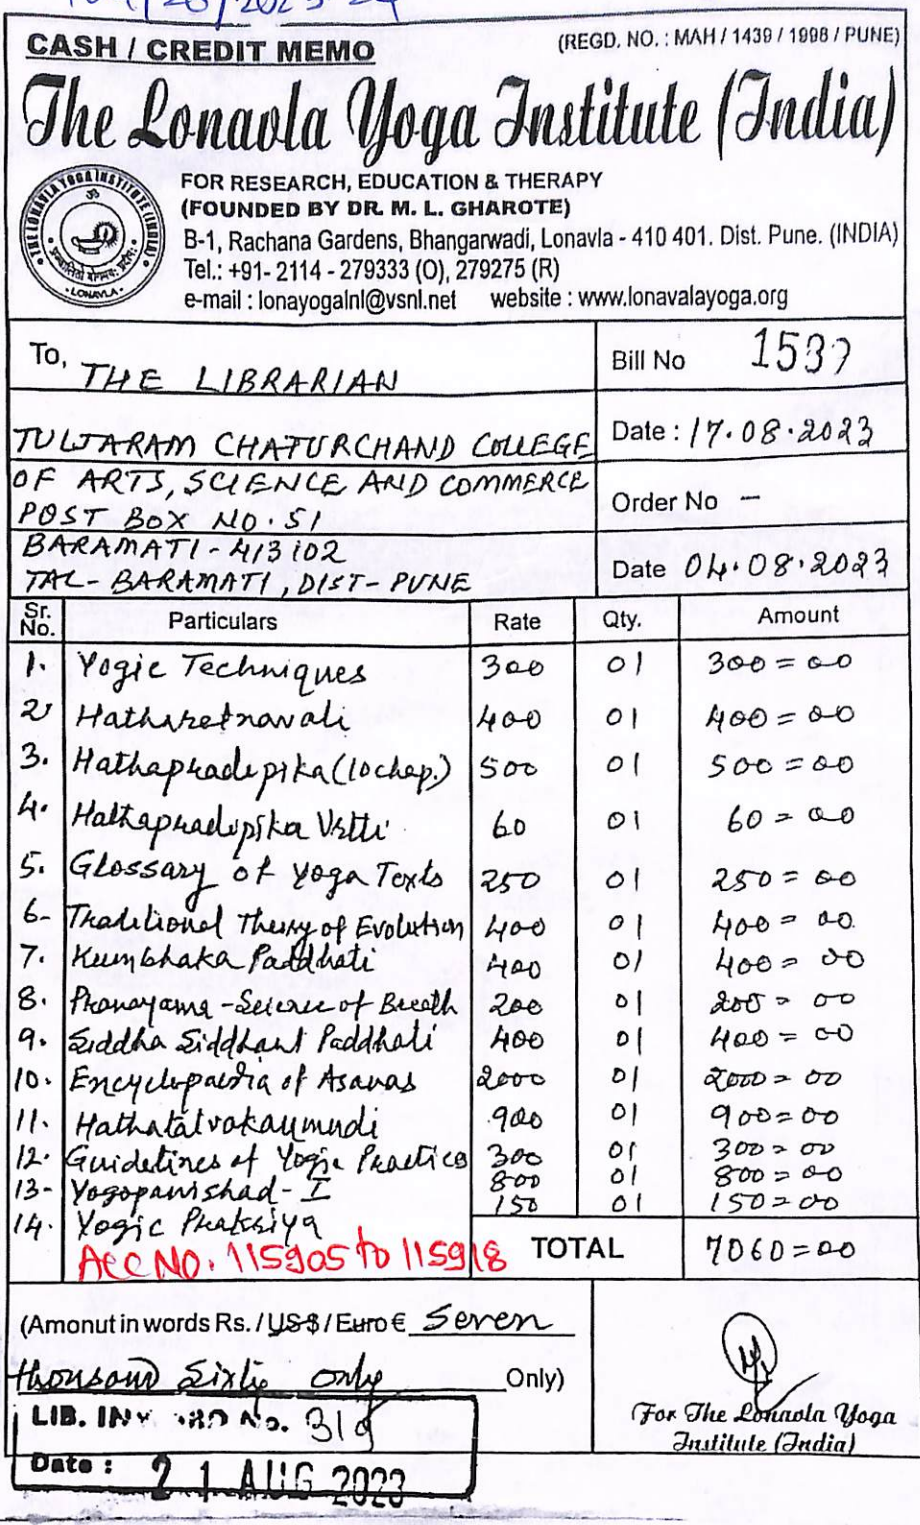 /26/2023-24
CASH / CREDIT MEMO
(REGD. NO. : MAH / 1439 / 1998 / PUNE)
The Lonavla Yoga Institute (India)
THE LONAVLA YOGA INSTITUTE (INDIA)
LONAVLA
FOR RESEARCH, EDUCATION & THERAPY
(FOUNDED BY DR. M. L. GHAROTE)
B-1, Rachana Gardens, Bhangarwadi, Lonavla - 410 401. Dist. Pune. (INDIA)
Tel.: +91- 2114 - 279333 (O), 279275 (R)
e-mail : lonayogalnl@vsnl.net website : www.lonavalayoga.org
To, THE LIBRARIAN
Bill No
TULJARAM CHATURCHAND COLLEGE
Date : 17.08.2023
OF ARTS, SCIENCE AND COMMERCE
POST BOX NO. 51
Order No –
BARAMATI - 413102
TAL- BARAMATI, DIST- PUNE
Date 04.08.2023
Sr. No. Particulars Rate Qty. Amount
1. Yogic Techniques 300 01 300=00
2 Hatharatnavali 400 01 400=00
3. Hathapradipika (10 chap.) 500 01 500=00
4. Hathapradipika Vritti 60 01 60=00
5. Glossary of Yoga Texts 250 01 250=00
6- Traditional Theory of Evolution 400 01 400=00
7. Kumbhaka Paddhati 400 01 400=00
8. Pranayama - Science of Breath 200 01 200=00
9. Siddha Siddhant Paddhati 400 01 400=00
10. Encyclopaedia of Asanas 2000 01 2000=00
11. Hathatatvakaumudi 900 01 900=00
12. Guidelines of Yogic Practice 300 01 300=00
13- Yogopanishad - I 800 01 800=00
14. Yogic Prakriya 150 01 150=00
Acc No. 115905 to 115918
TOTAL 7060=00
(Amonut in words Rs. / US $ / Euro € Seven
thousand Sixty only Only)
For The Lonavla Yoga
Institute (India)
LIB. INW No. 319
Date : 21 AUG 2023